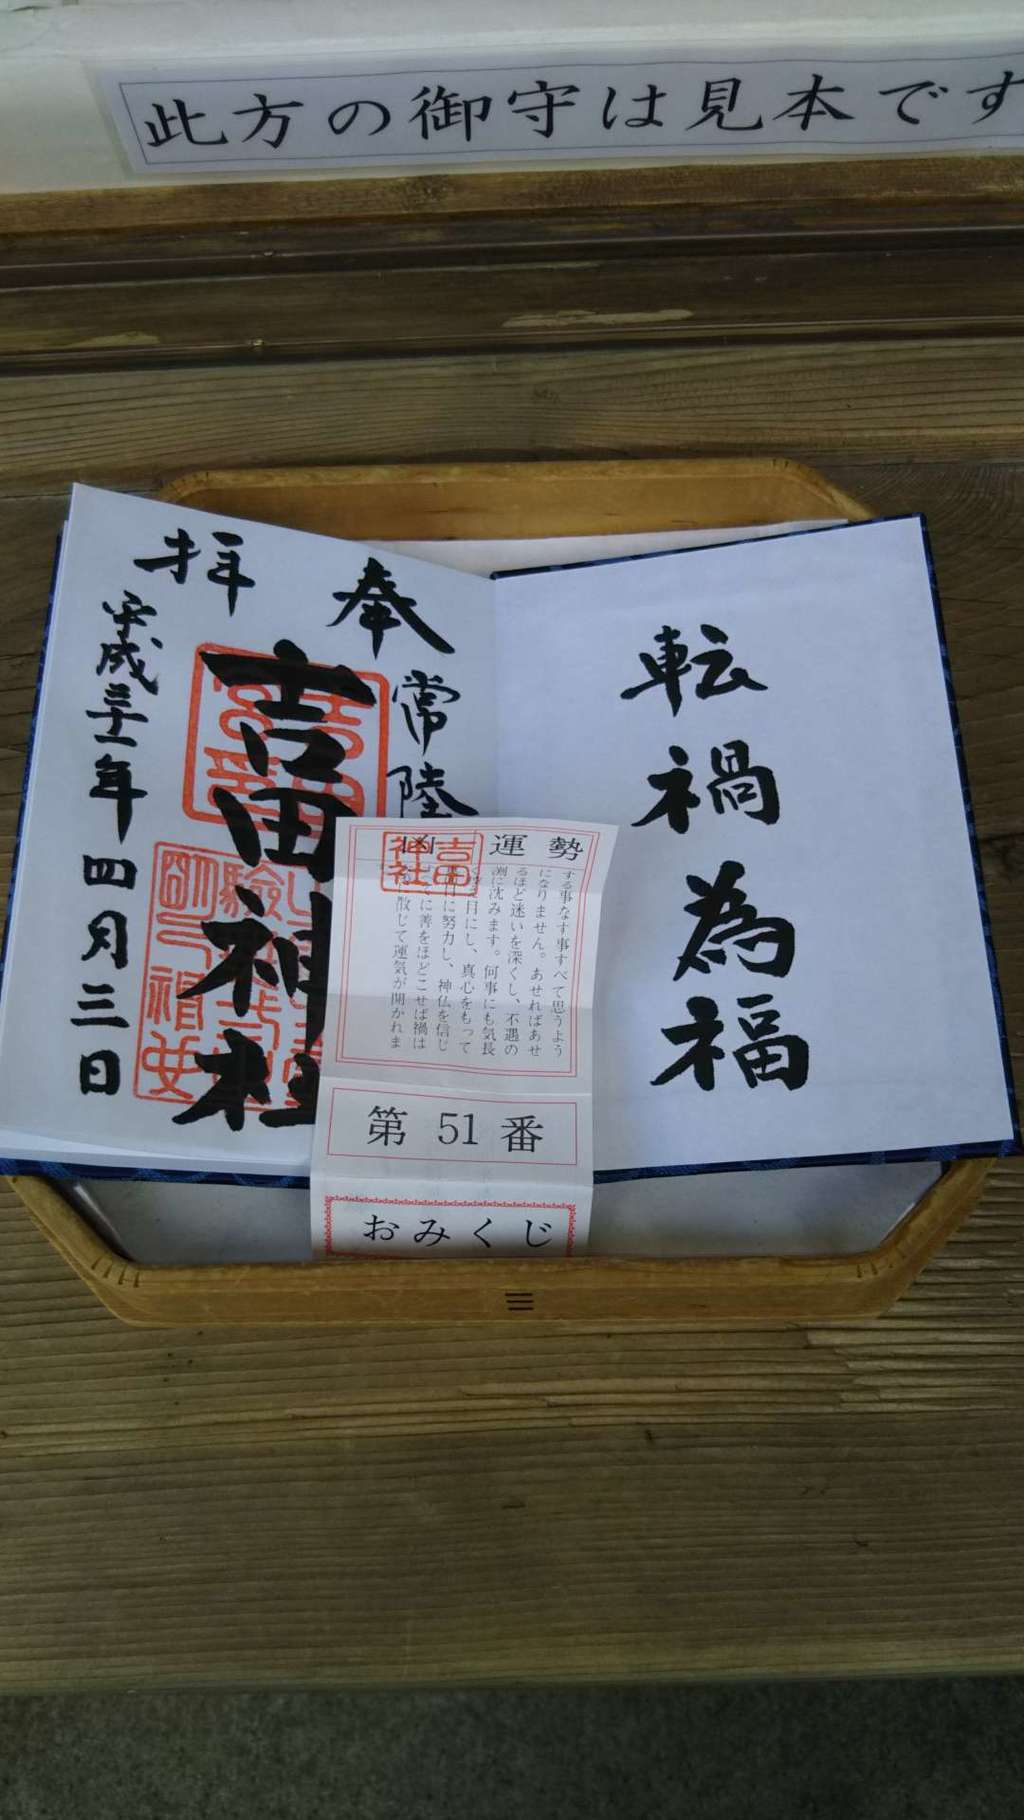 此方の御守は見本です
転禍為福
奉拝
常陸
吉田神社
平成三十一年四月三日
吉田神社
運勢 凶
する事なす事すべて思うよう
になりません。あせればあせ
るほど迷いを深くし、不遇の
淵に沈みます。何事にも気長
目にし、真心をもって
に努力し、神仏を信じ
に善をほどこせば禍は
散じて運気が開かれま
第 51 番
おみくじ